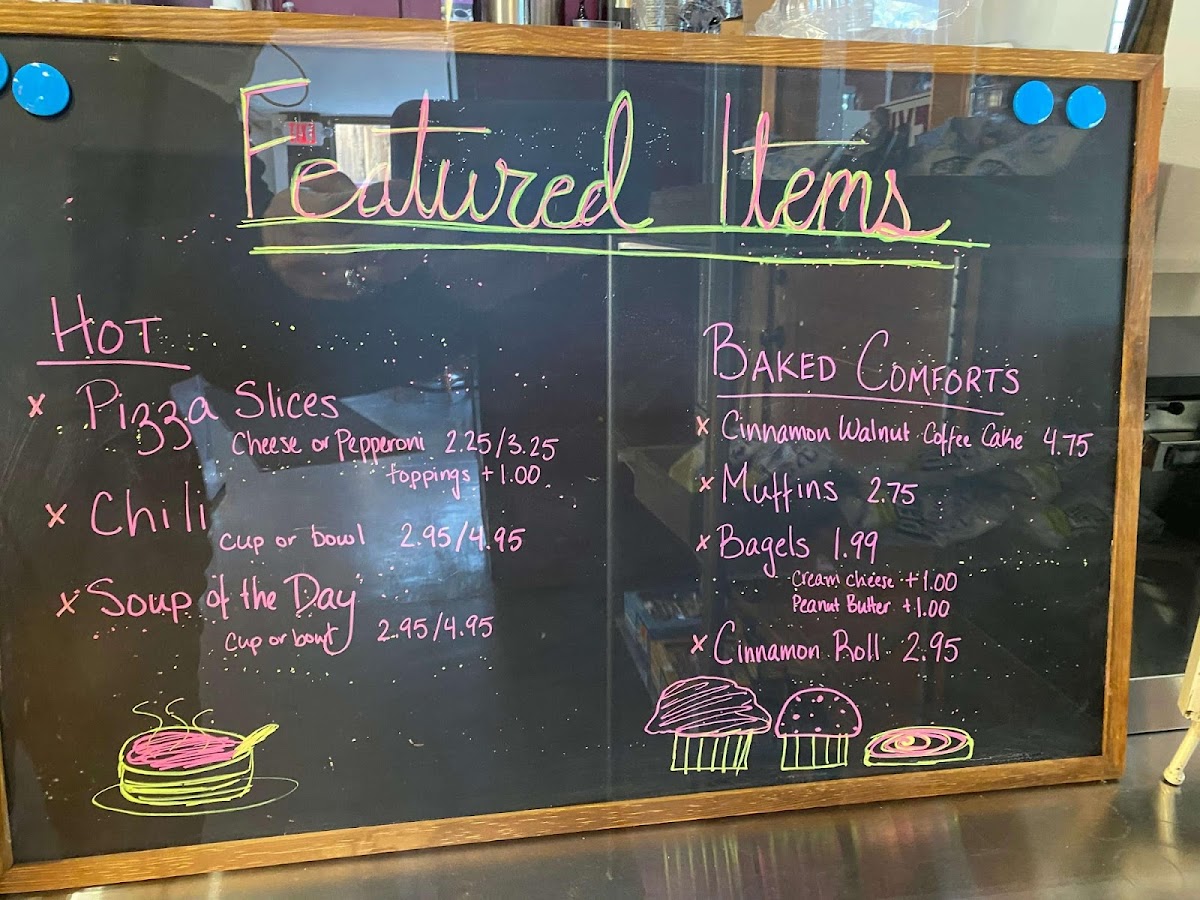 Featured Items
HOT
x Pizza Slices
Cheese or Pepperoni 2.25/3.25
toppings +1.00
x Chili
cup or bowl 2.95/4.95
x Soup of the Day
cup or bowl 2.95/4.95
BAKED COMFORTS
x Cinnamon Walnut Coffee Cake 4.75
x Muffins 2.75
x Bagels 1.99
Cream cheese +1.00
Peanut Butter +1.00
x Cinnamon Roll 2.95